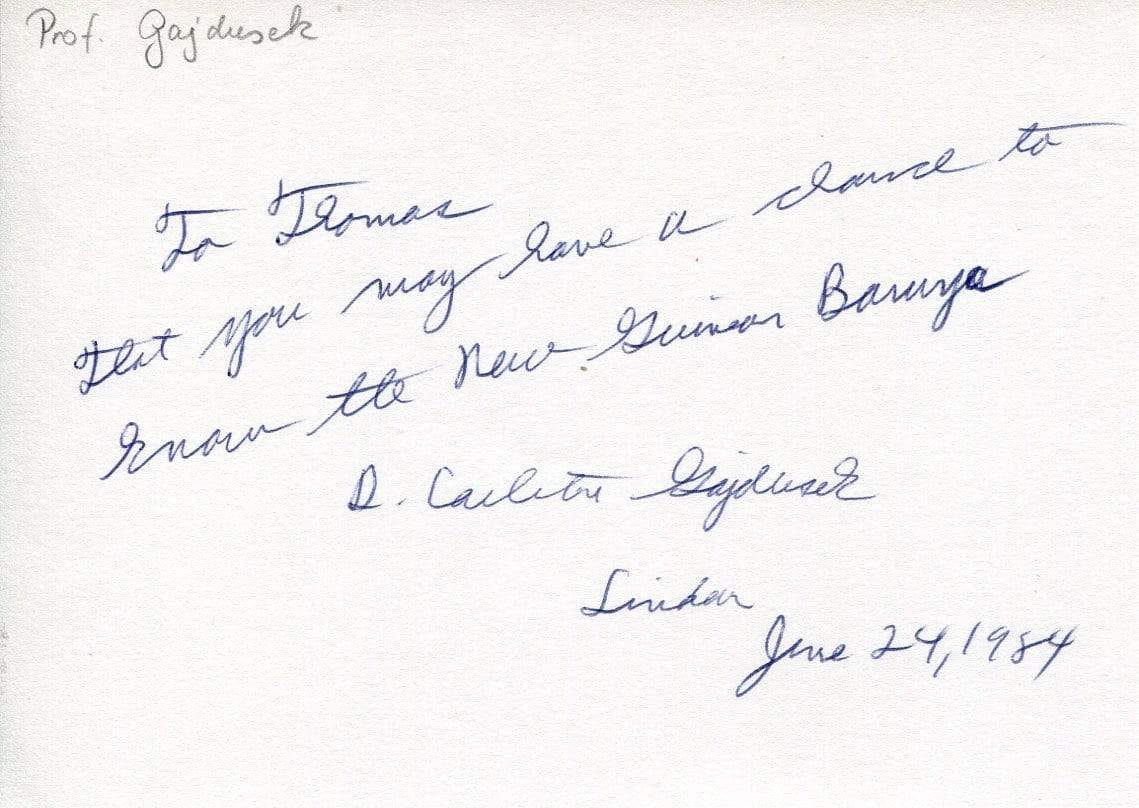 Prof. Gajdusek
To Thomas
That you may have a chance to
know the New Guinean Baruya
D. Carleton Gajdusek
Lindau
June 24, 1984